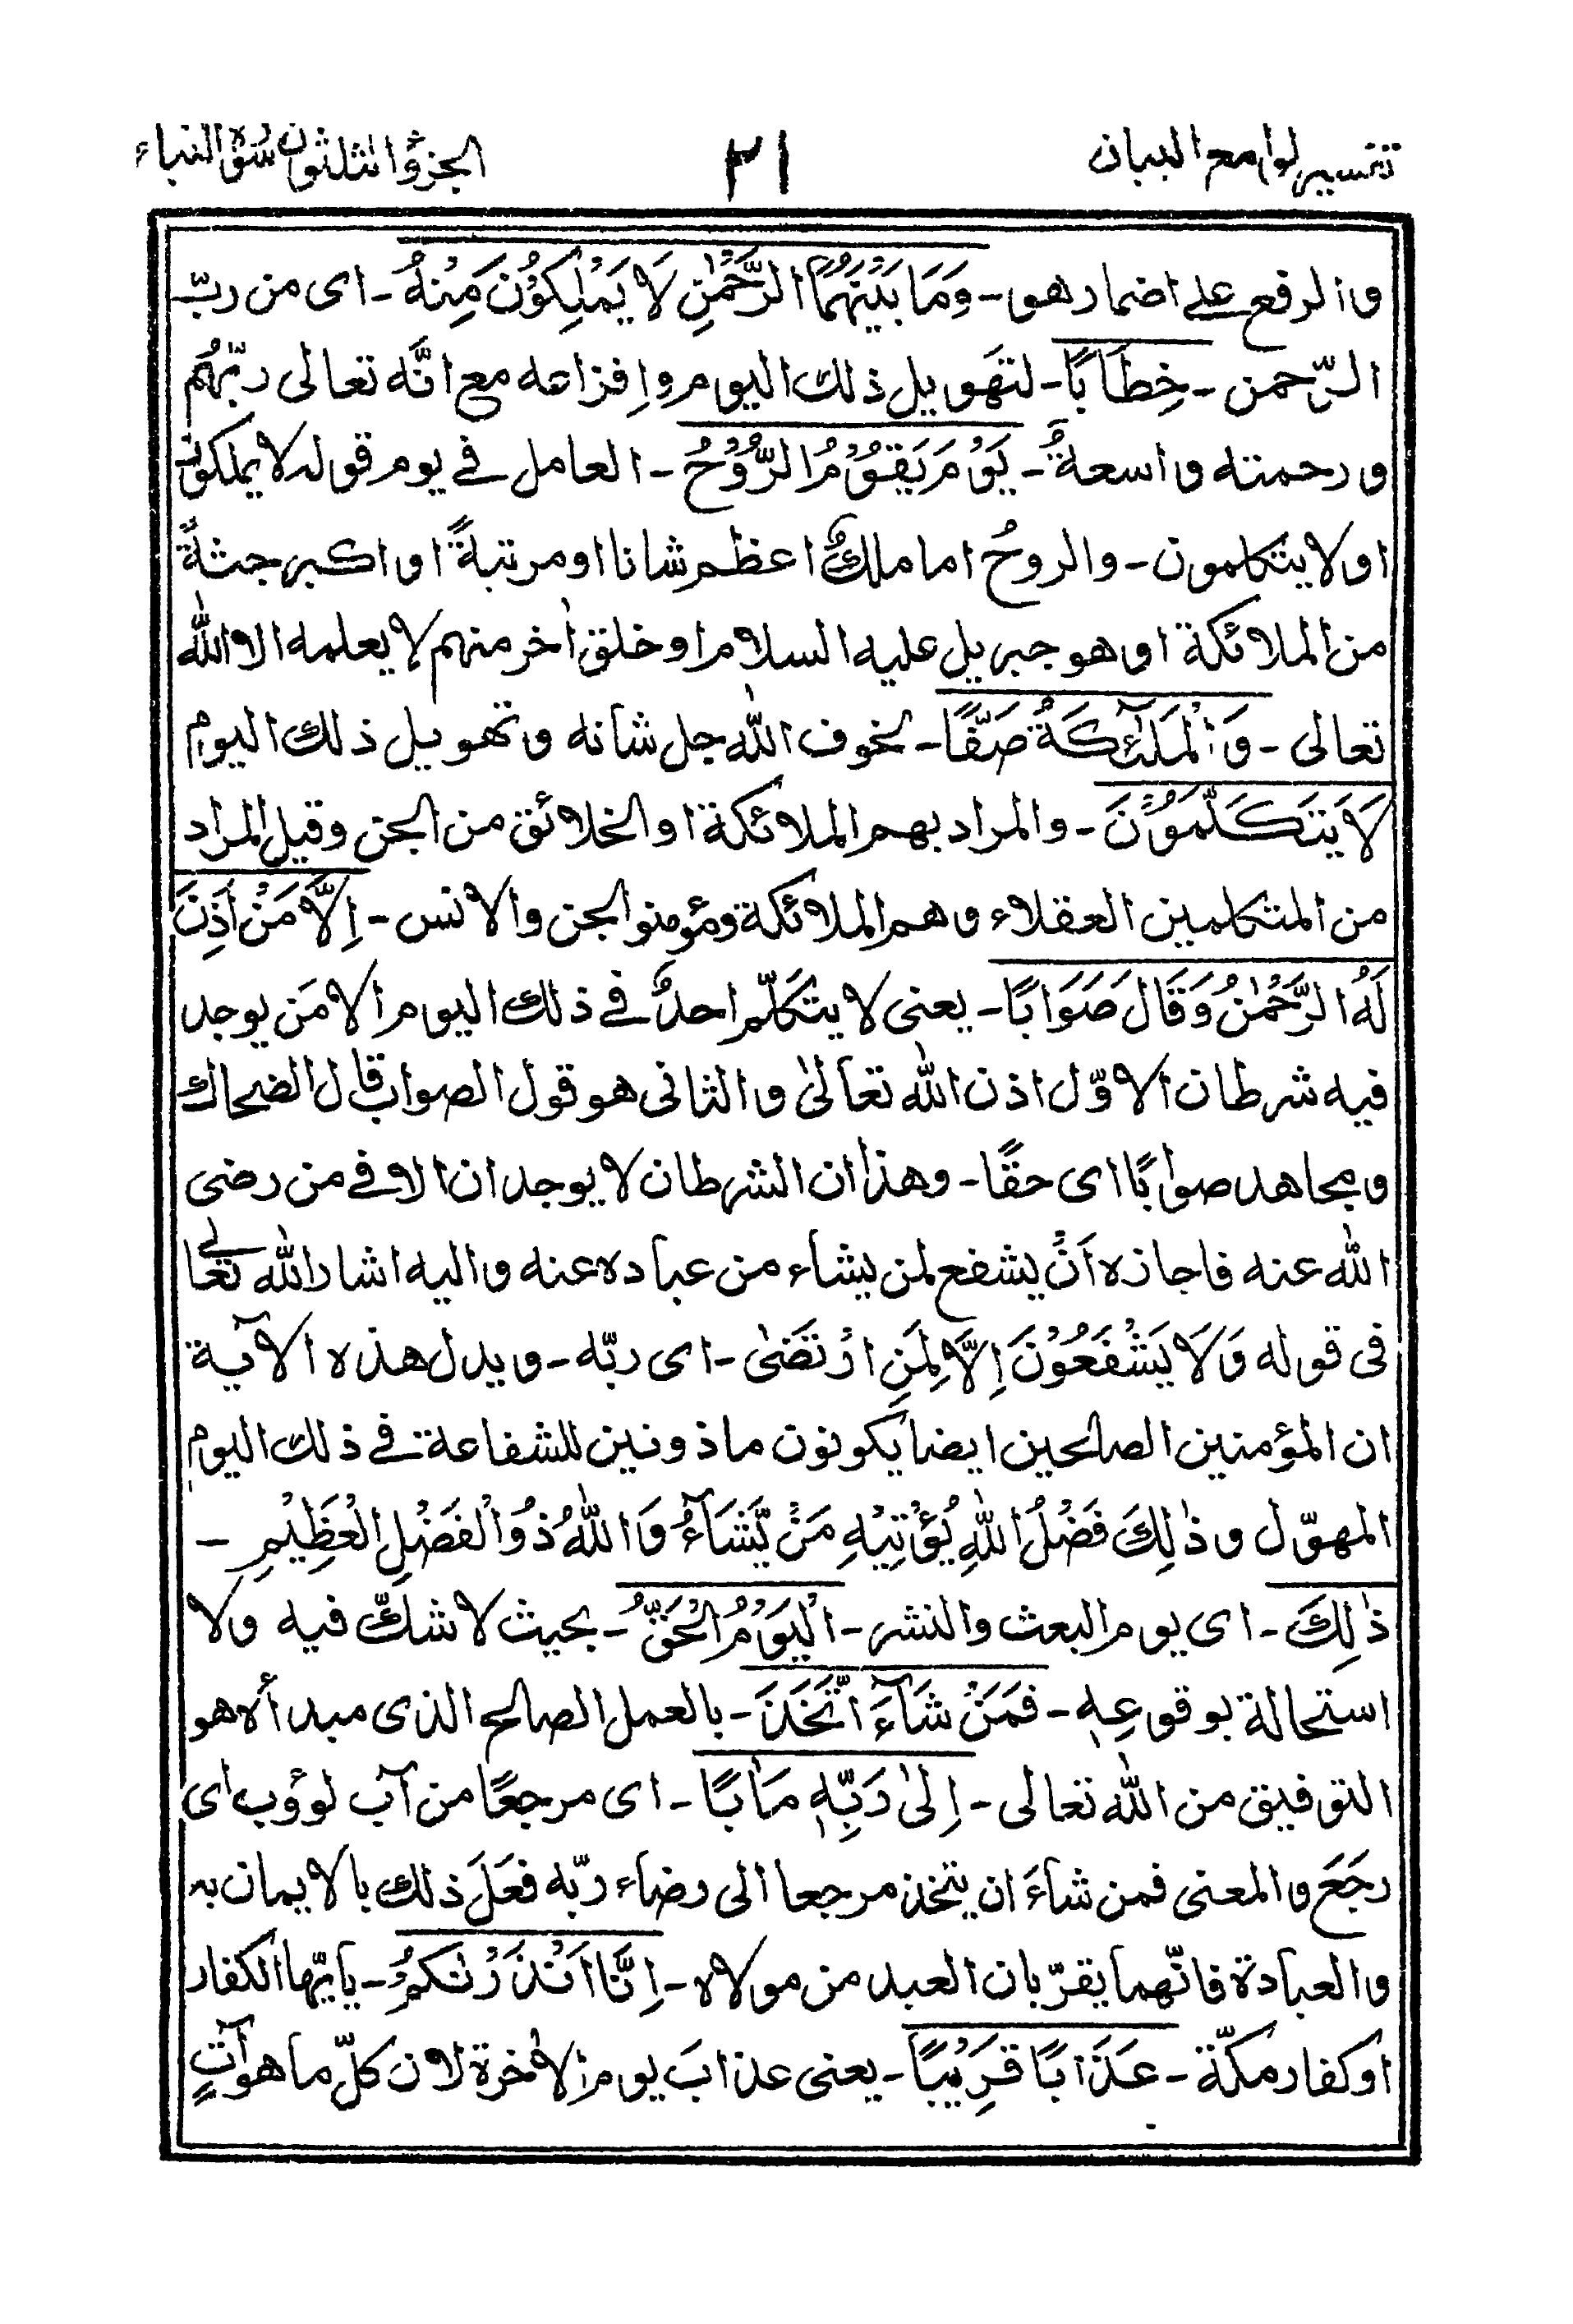 تفسير لوامع البيان ٢١ الجزؤ الثلثون سورة النباء
والرفع على اضمار هو - وَمَا بَيْنَهُمَا الرَّحْمٰنِ لَا يَمْلِكُوْنَ مِنْهُ - اى من ربّ
الرّحمن - خِطَابًا - لتهويل ذلك اليوم وافزاعه مع انّه تعالى ربّهُم
ورحمته واسعةٌ - يَوْمَ يَقُوْمُ الرُّوْحُ - العامل فے يوم قوله لا يملكون
او لا يتكلمون - والروحُ اما ملكٌ اعظم شانا او مرتبةً او اكبر جثةً
من الملائكة او هو جبريل عليه السلام او خلق اٰخر منهم لا يعلمه الا اللّٰه
تعالى - وَالْمَلٰٓئِكَةُ صَفًّا - لخوف اللّٰه جل شانه وتهويل ذلك اليوم
لَا يَتَكَلَّمُوْنَ - والمراد بهم الملائكة او الخلائق من الجن وقيل المراد
من المتكلمين العقلاء وهم الملائكة ومؤمنوا الجن والانس - اِلَّا مَنْ اَذِنَ
لَهُ الرَّحْمٰنُ وَقَالَ صَوَابًا - يعنى لا يتكلّم احدٌ فے ذلك اليوم الا مَن يوجد
فيه شرطان الاوّل اذن اللّٰه تعالىٰ والثانى هو قول الصواب قال الضحاك
ومجاهد صوابًا اى حقًا - وهذان الشرطان لا يوجدان الا فے من رضى
اللّٰه عنه فاجازه اَنْ يشفع لمن يشاء من عباده عنه واليه اشار اللّٰه تعالى
فى قوله وَلَا يَشْفَعُوْنَ اِلَّا لِمَنِ ارْتَضٰى - اى ربّه - ويدل هذه الآية
ان المؤمنين الصالحين ايضا يكونون ماذونين للشفاعة فے ذلك اليوم
المهوّل وذٰلِكَ فَضْلُ اللّٰهِ يُؤْتِيْهِ مَنْ يَّشَآءُ وَاللّٰهُ ذُو الْفَضْلِ الْعَظِيْمِ -
ذٰلِكَ - اى يوم البعث والنشر - الْيَوْمُ الْحَقُّ - بحيث لا شكّ فيه ولا
استحالة بوقوعه - فَمَنْ شَآءَ اتَّخَذَ - بالعمل الصالح الذى مبدأه هو
التوفيق من اللّٰه تعالى - اِلىٰ رَبِّهٖ مَاٰبًا - اى مرجعًا من آب لوؤب اى
رجَعَ والمعنى فمن شآءَ ان يتخذ مرجعا الى رضاء ربّه فعَلَ ذلك بالايمان به
والعبادة فانّهما يقرّبان العبد من مولاه - اِنَّا اَنْذَرْنٰكُمْ - يا يّها الكفار
او كفار مكّة - عَذَابًا قَرِيْبًا - يعنى عذابَ يوم الاٰخرة لان كلّ ما هو اٰتٍ